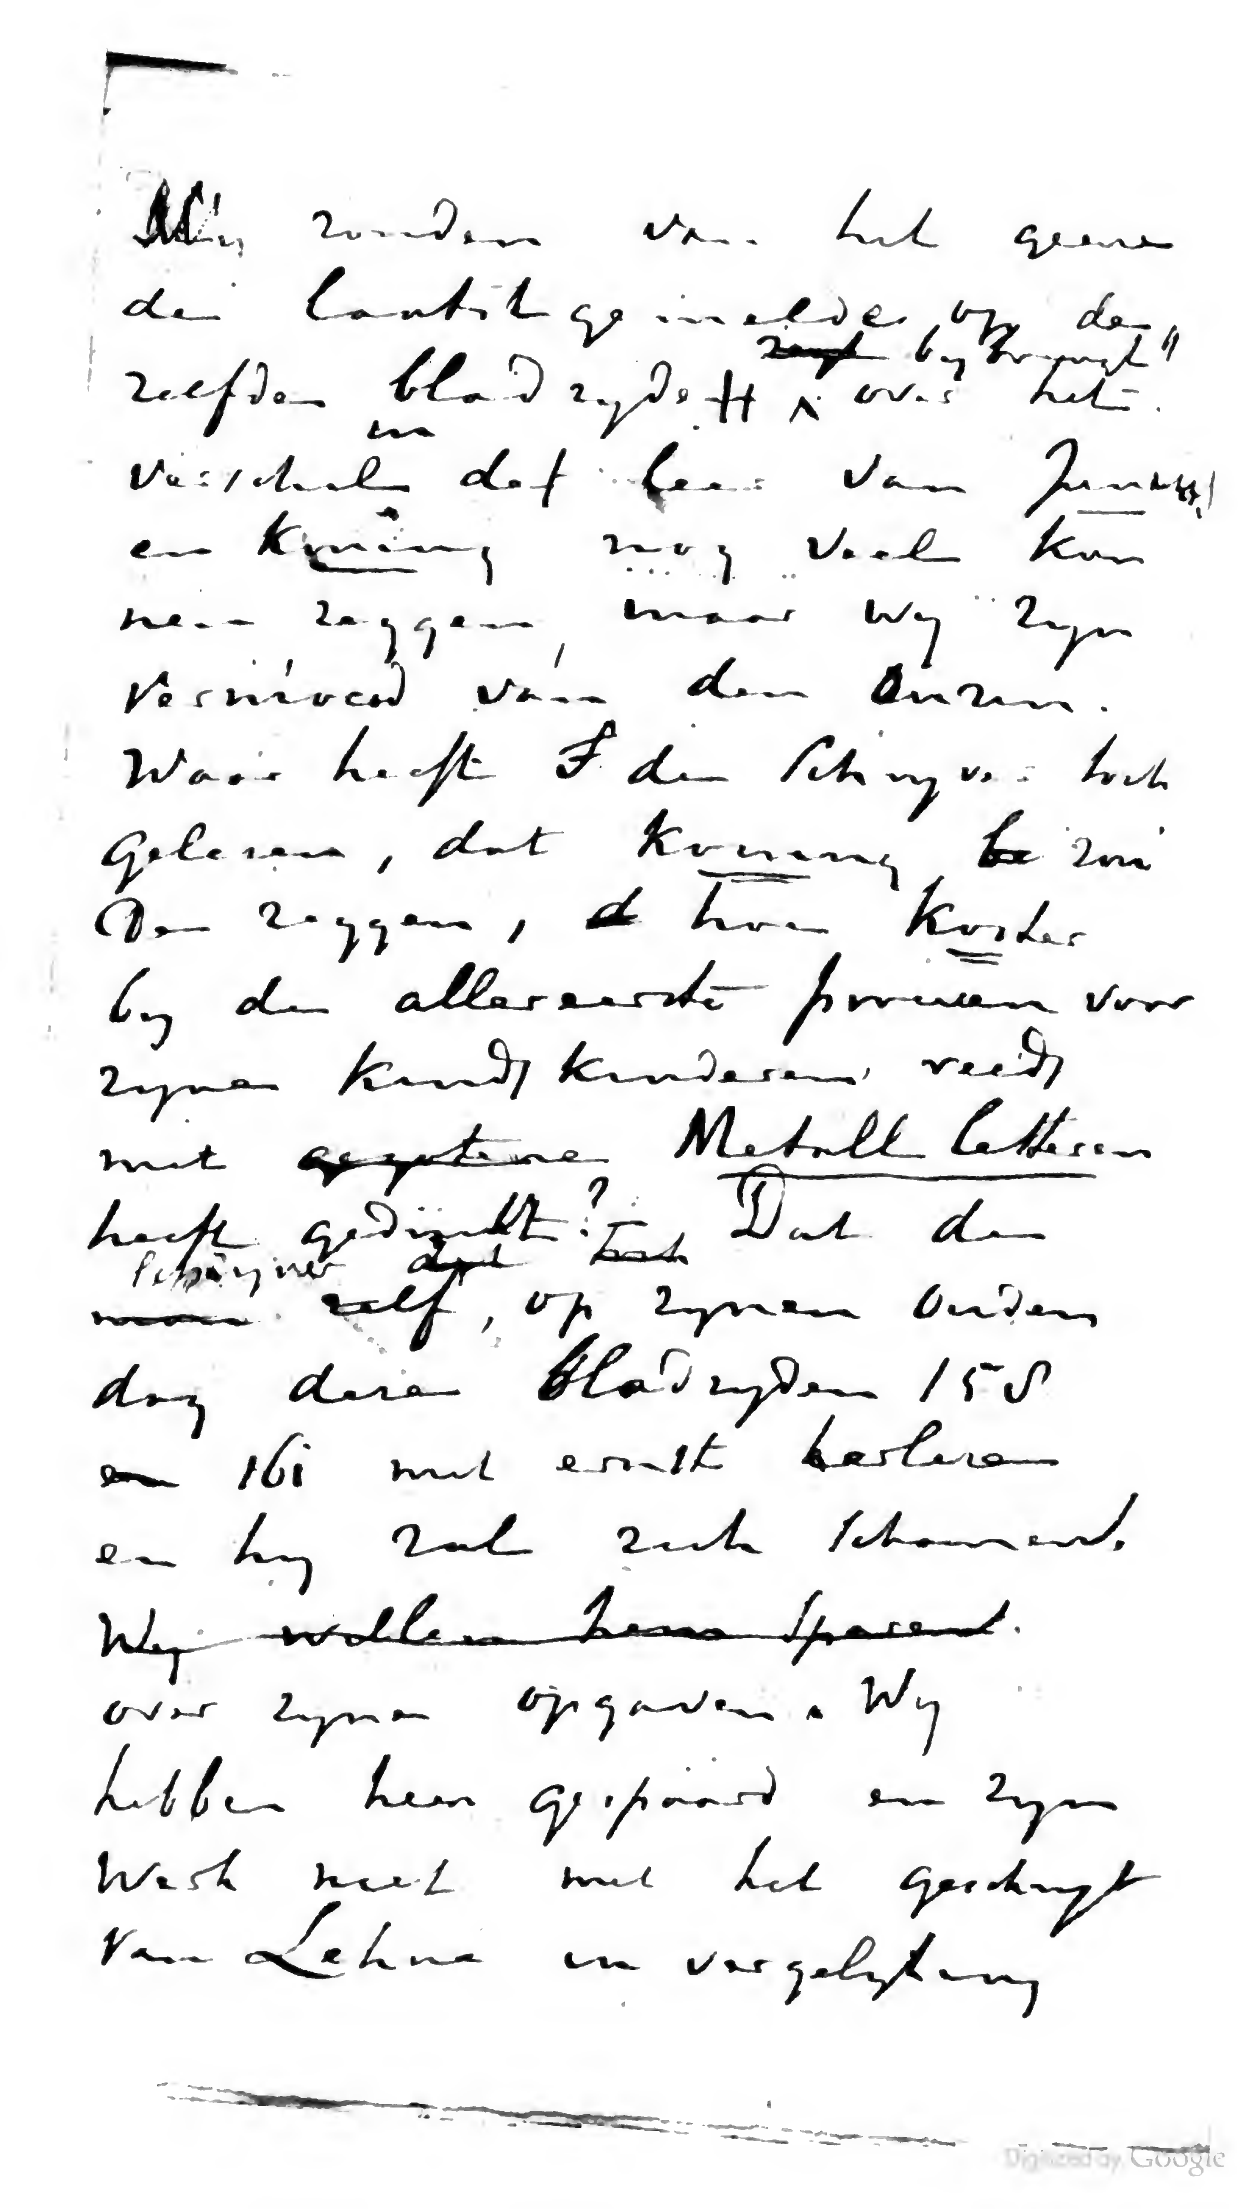 Wij zouden van het geene
de laatstgemelde op de„
zegt bybrengt"
zelfden bladzyde H ^ over het
in
verschil def leer van Junius
en Koning nog veel kon
nen zeggen, maar wy zyn
vermoeid van den onzin.
Waar heeft de Schryver toch
gelezen, dat Koning zou
den zeggen, hoe Koster
by de allereerste proeven voor
zyne kindskinderen reeds
met gegotene Metalle letteren
heeft gedrukt? Dat de
Schryver dat
man zelf, op zynen ouden
dag deze bladzyden 158
en 161 met ernst herleze
en hy zal zich schamen
Wy willen hem sparen.
over zyne opgaven. Wy
hebben hem gespaard en zyn
Werk niet met het geschryf
van Lehne in vergelyking
Digitized by Google